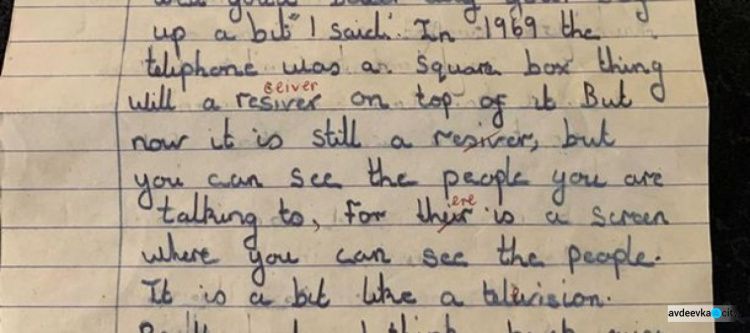 up a bit" I said. In 1969 the
teliphone was a square box thing
ceiver
will a resiver on top of it But
now it is still a resiver, but
you can see the people you are
ere
talking to, for their is a screen
where you can see the people.
It is a bit like a television.
avdeevka.city